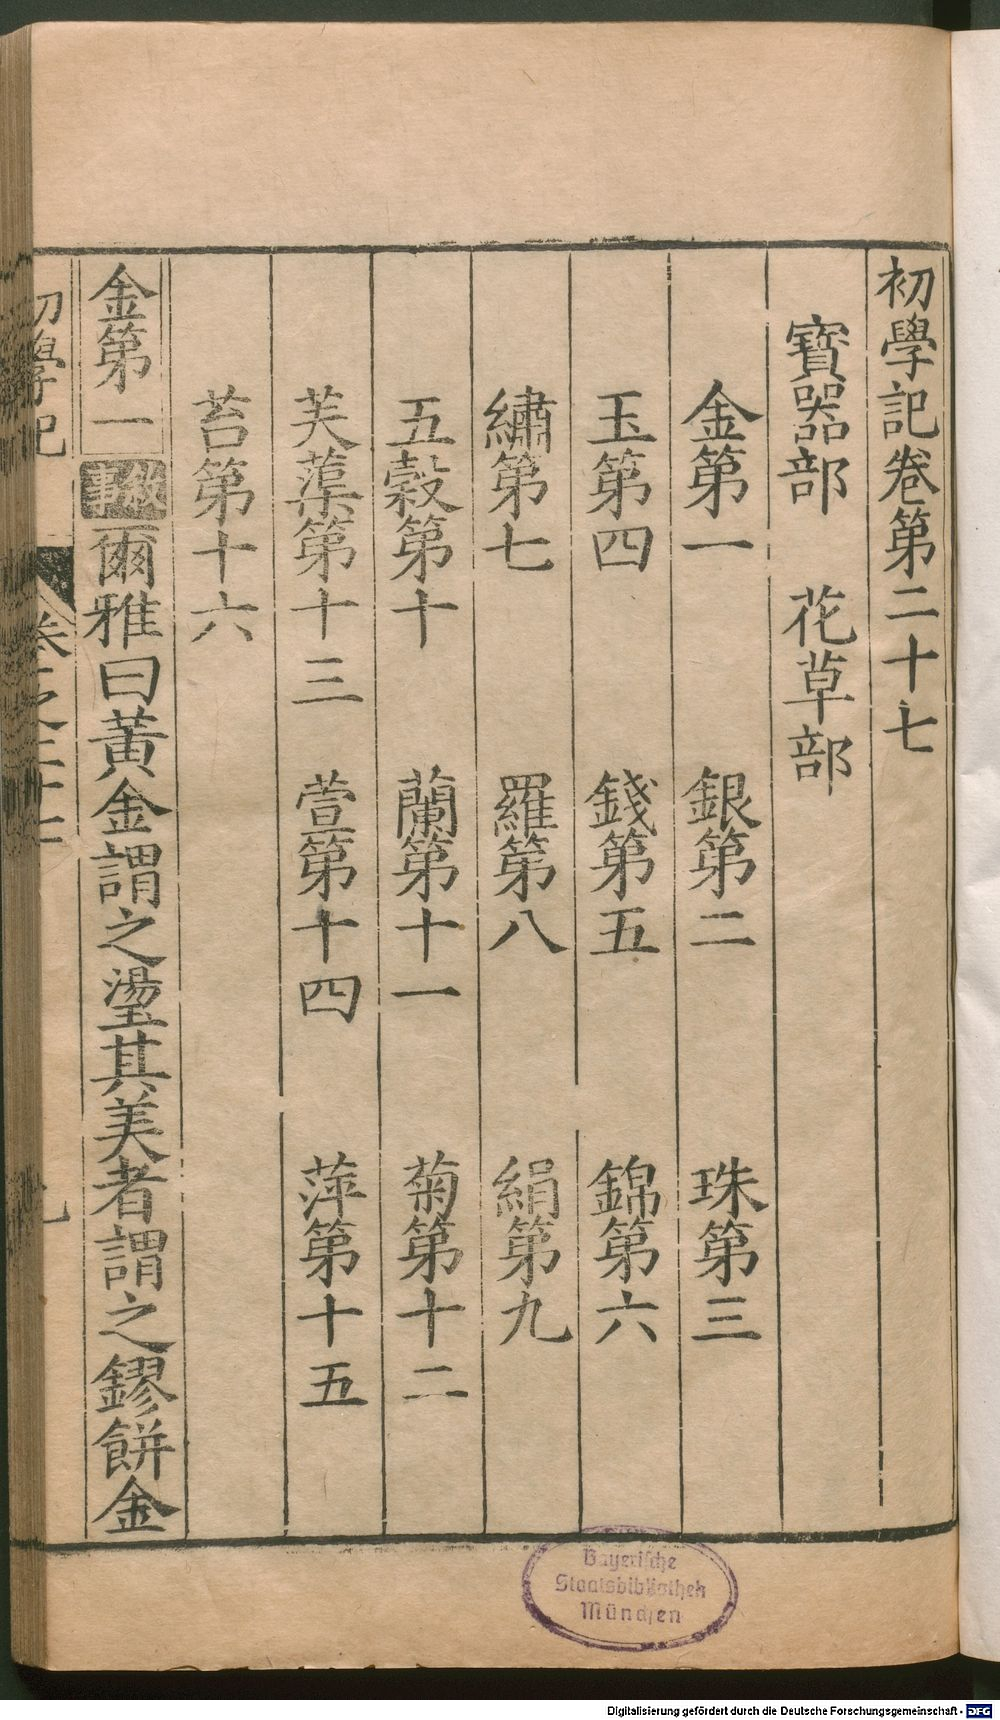 初學記卷第二十七
寶器部 花草部
金第一 銀第二 珠第三
玉第四 錢第五 錦第六
繡第七 羅第八 絹第九
五穀第十 蘭第十一 菊第十二
芙蕖第十三 萱第十四 萍第十五
苔第十六
金第一 敘事 爾雅曰黃金謂之璗其美者謂之鏐餅金
初學記 卷之二十七
Bayerische
Staatsbibliothek
München
Digitalisierung gefördert durch die Deutsche Forschungsgemeinschaft - DFG